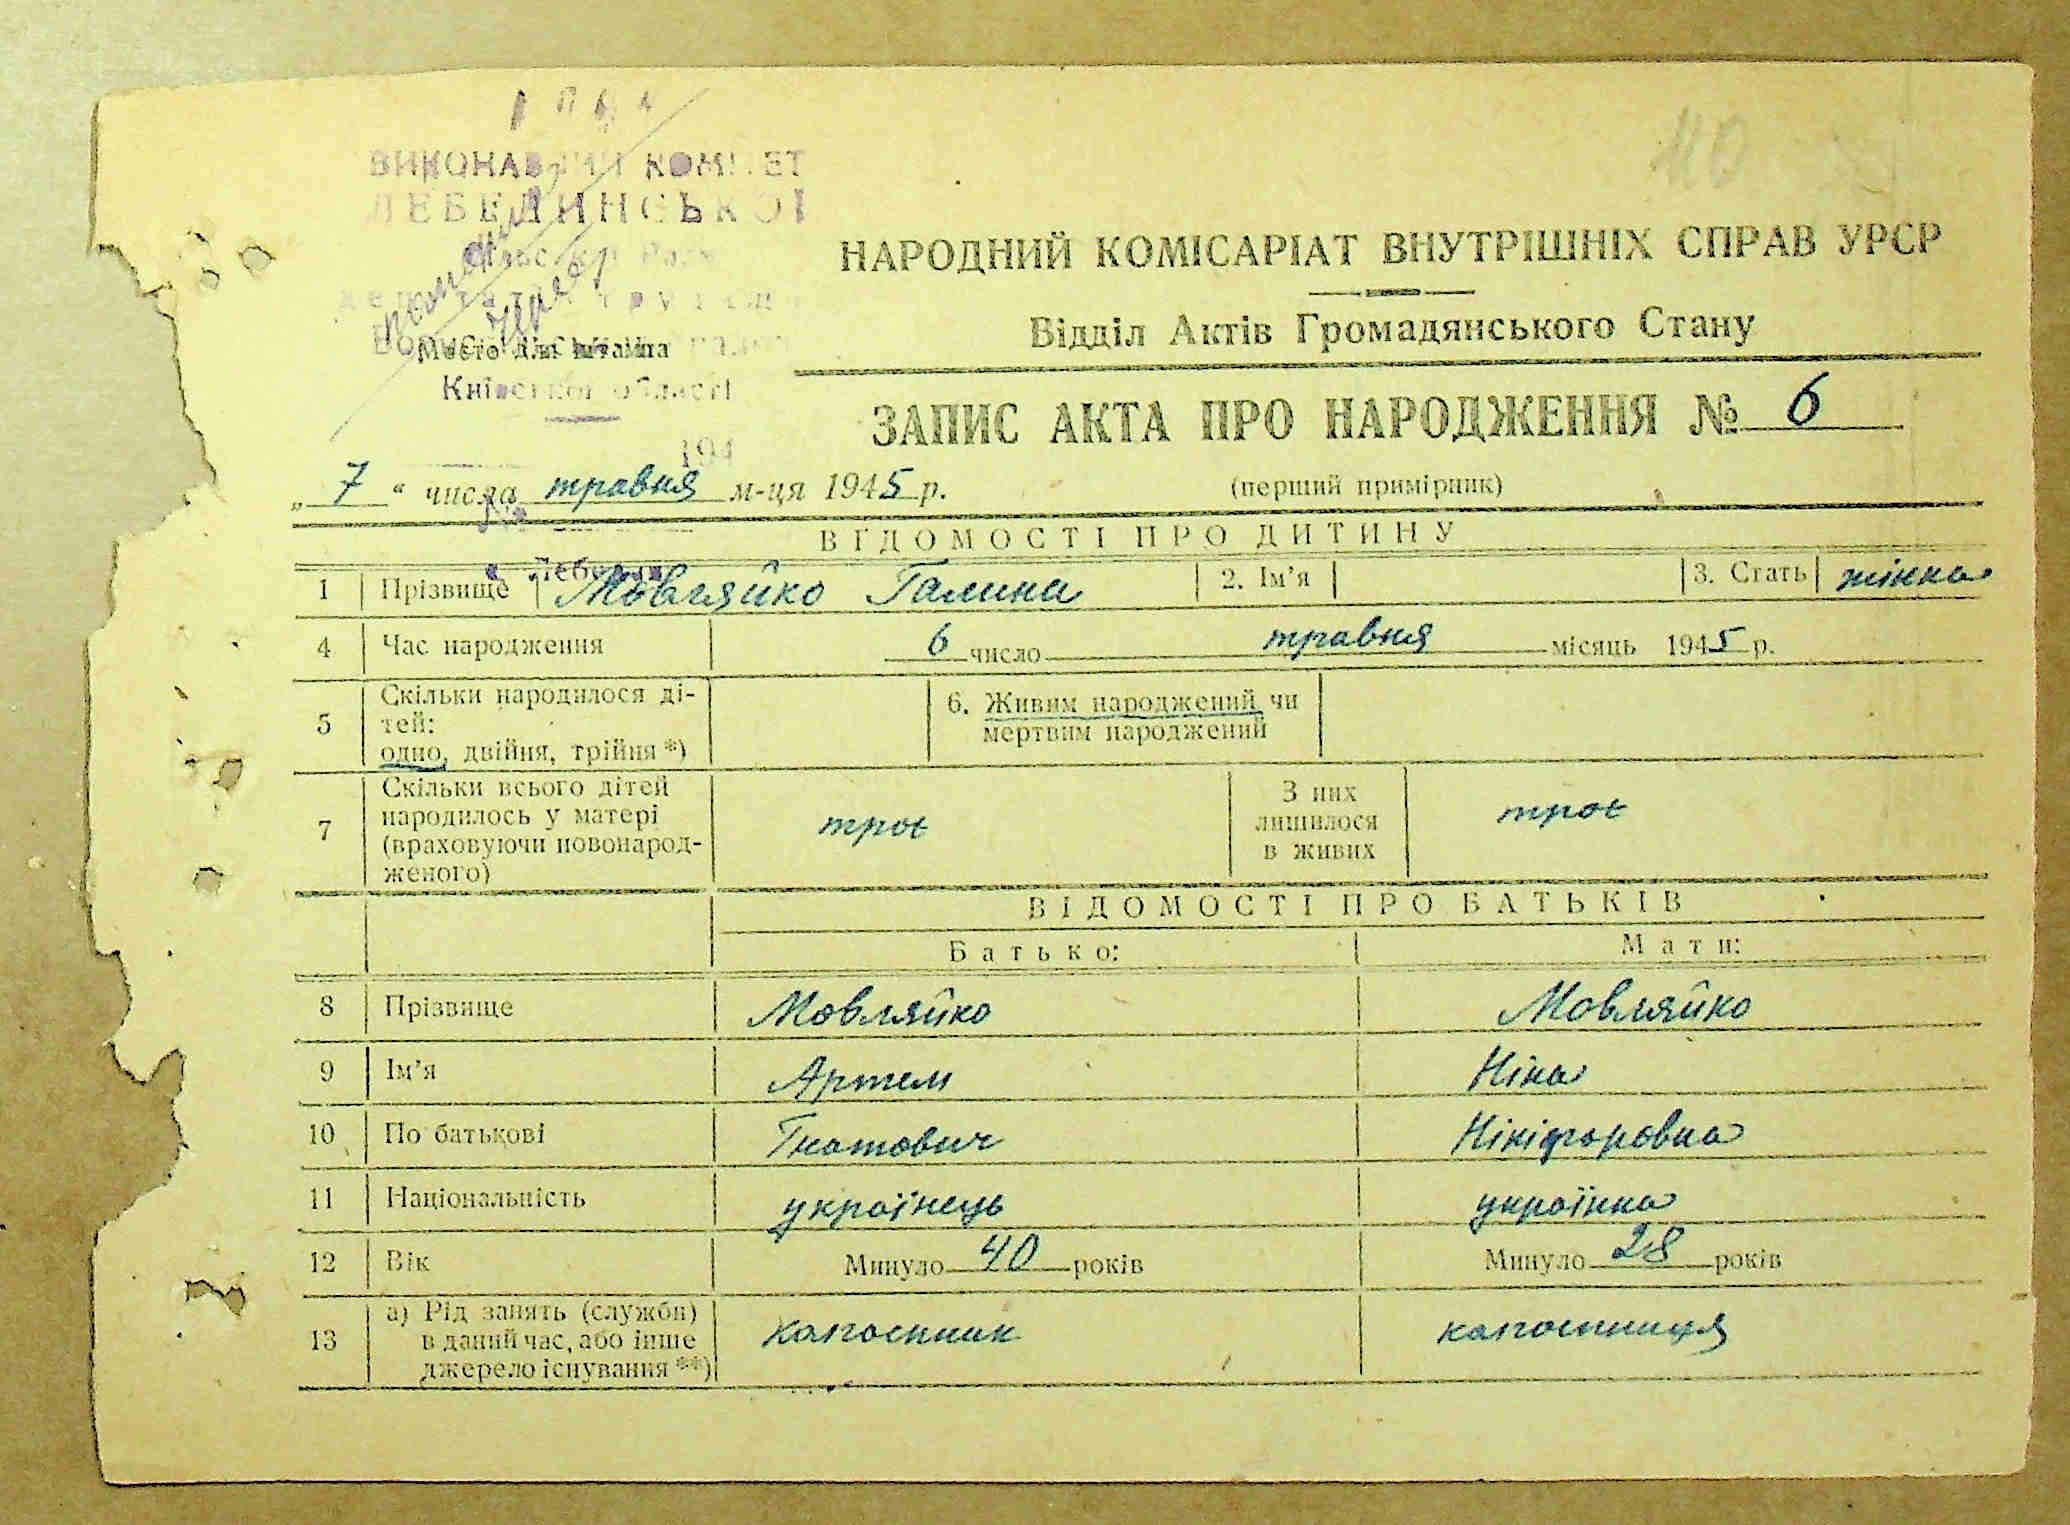 110
ВИКОНАВЧИЙ КОМІТЕТ
ЛЕБЕДИНСЬКОЇ
Место для штампа
Київської області
194
НАРОДНИЙ КОМІСАРІАТ ВНУТРІШНІХ СПРАВ УРСР
Відділ Актів Громадянського Стану
ЗАПИС АКТА ПРО НАРОДЖЕННЯ № 6
„ 7 “ числа травня м-ця 1945 р.
(перший примірник)
ВІДОМОСТІ ПРО ДИТИНУ
1 Прізвище Мовляйко Галина 2. Ім'я 3. Стать жінка
4 Час народження 6 число травня місяць 1945 р.
5 Скільки народилося ді-
тей:
одно, двійня, трійня *)
6. Живим народжений чи
мертвим народжений
7 Скільки всього дітей
народилось у матері
(враховуючи новонарод-
женого)
троє
З них
лишилося
в живих
троє
ВІДОМОСТІ ПРО БАТЬКІВ
Батько: Мати:
8 Прізвище Мовляйко Мовляйко
9 Ім'я Артем Ніна
10 По батькові Гнатович Нікіфоровна
11 Національність українець українка
12 Вік Минуло 40 років Минуло 28 років
13 а) Рід занять (служби)
в даний час, або інше
джерело існування **)
колгоспник колгоспниця